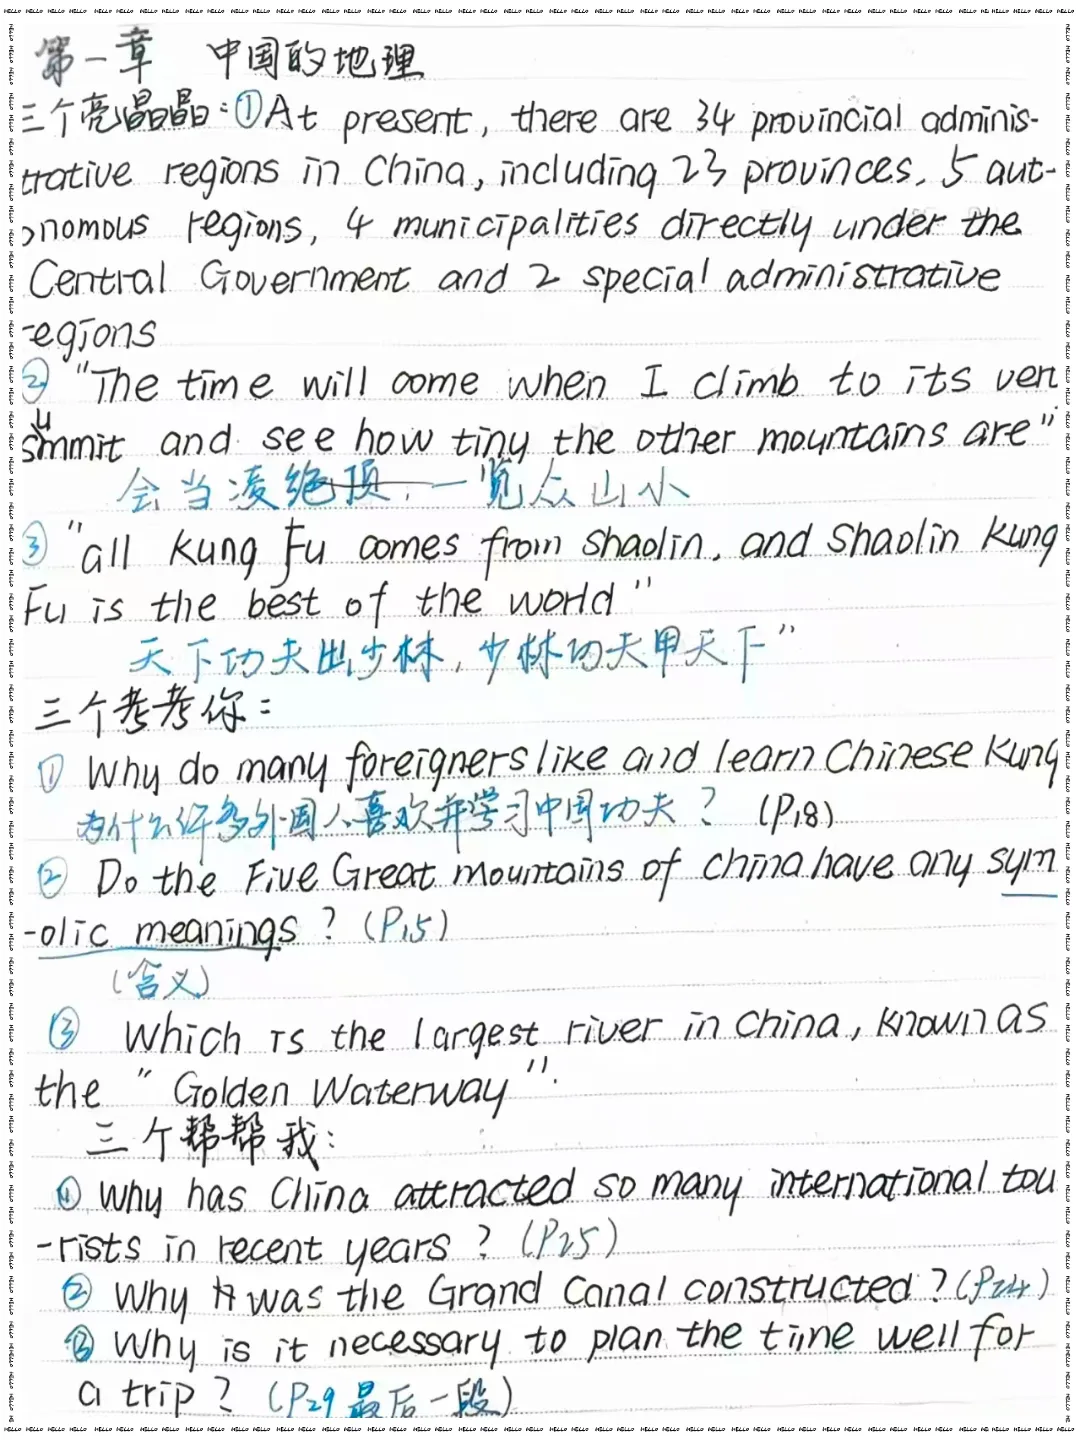 第一章 中国的地理
三个亮晶晶:①At present, there are 34 provincial adminis-
trative regions in China, including 23 provinces, 5 aut-
onomous regions, 4 municipalities directly under the
Central Government and 2 special administrative
regions
② "The time will come when I climb to its ven
summit and see how tiny the other mountains are"
会当凌绝顶,一览众山小
③ "all Kung Fu comes from Shaolin, and Shaolin Kung
Fu is the best of the world"
天下功夫出少林,少林功夫甲天下"
三个考考你:
① Why do many foreigners like and learn Chinese Kung
为什么许多外国人喜欢并学习中国功夫? (P18)
② Do the Five Great mountains of china have any sym
-olic meanings? (P15)
(含义)
③ Which is the largest river in China, known as
the "Golden Waterway".
三个帮帮我:
① Why has China attracted so many international tou
-rists in recent years? (P25)
② Why was the Grand Canal constructed? (P24)
③ Why is it necessary to plan the time well for
a trip? (P29最后一段)